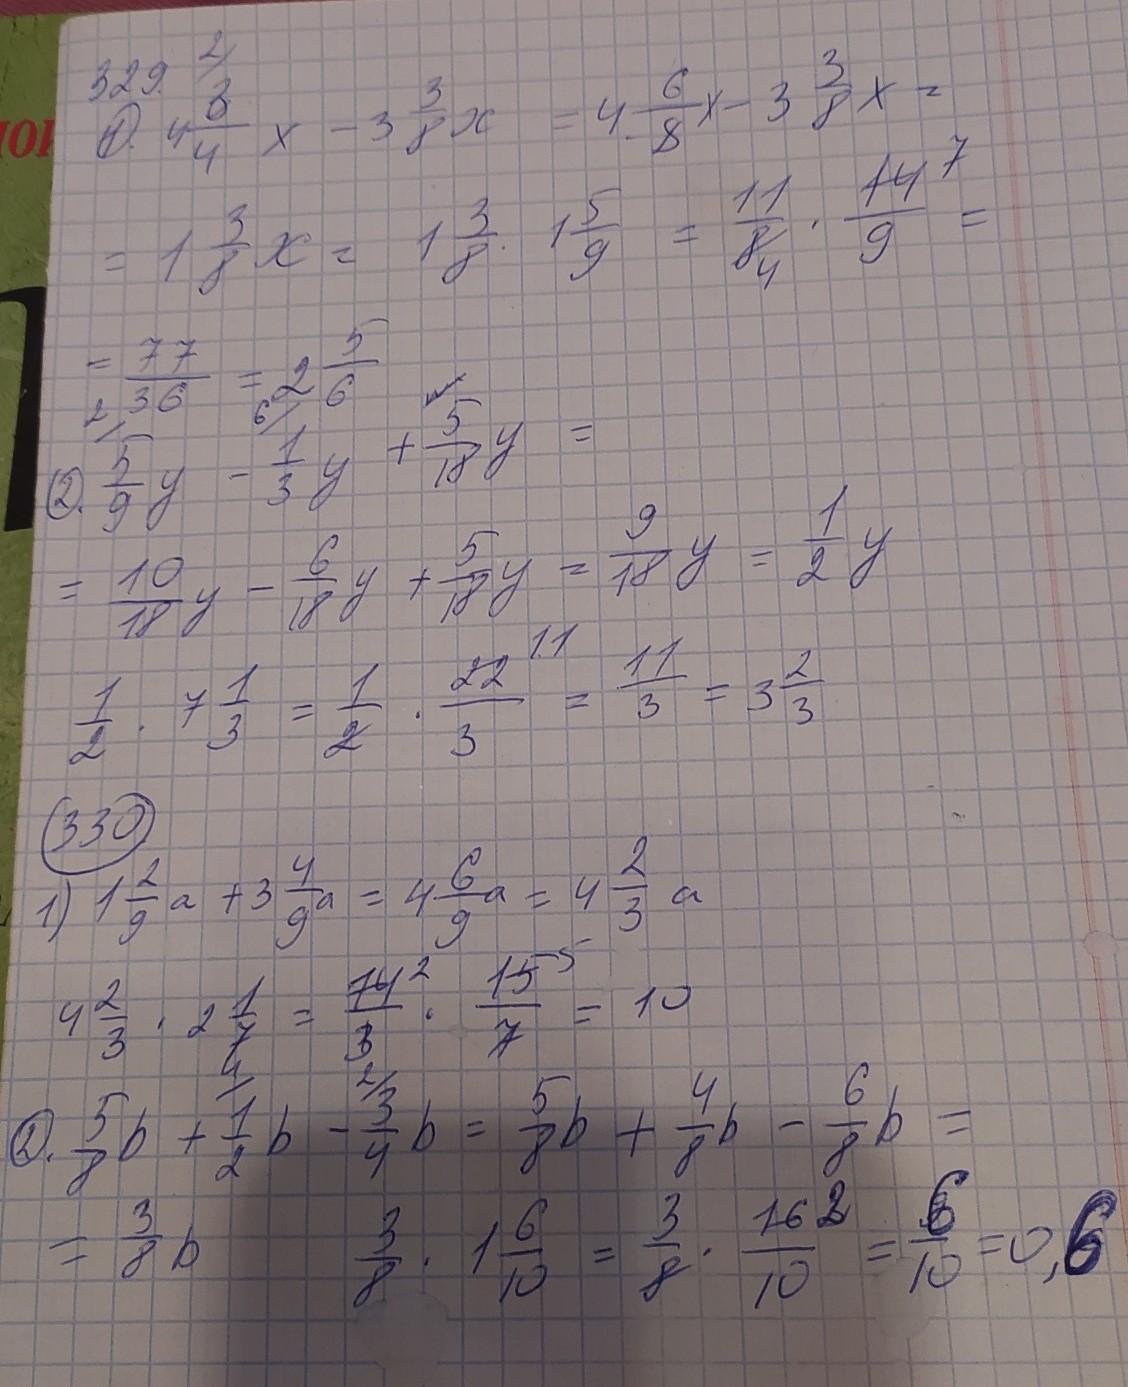 329.
1). 4 2/ 3/4 x - 3 3/8 x = 4 6/8 x - 3 3/8 x =
= 1 3/8 x = 1 3/8 · 1 5/9 = 11/8 4 · 14/9 7 =
= 77/36 = 2 5/6
2). 2/ 5/9 y - 6/ 1/3 y + 5/18 y =
= 10/18 y - 6/18 y + 5/18 y = 9/18 y = 1/2 y
1/2 · 7 1/3 = 1/2 · 22/3 11 = 11/3 = 3 2/3
330
1) 1 2/9 a + 3 4/9 a = 4 6/9 a = 4 2/3 a
4 2/3 · 2 1/7 = 14/3 2 · 15/7 5 = 10
2). 5/8 b + 4/ 1/2 b - 2/ 3/4 b = 5/8 b + 4/8 b - 6/8 b =
= 3/8 b 3/8 · 1 6/10 = 3/8 · 16/10 2 = 6/10 = 0,6